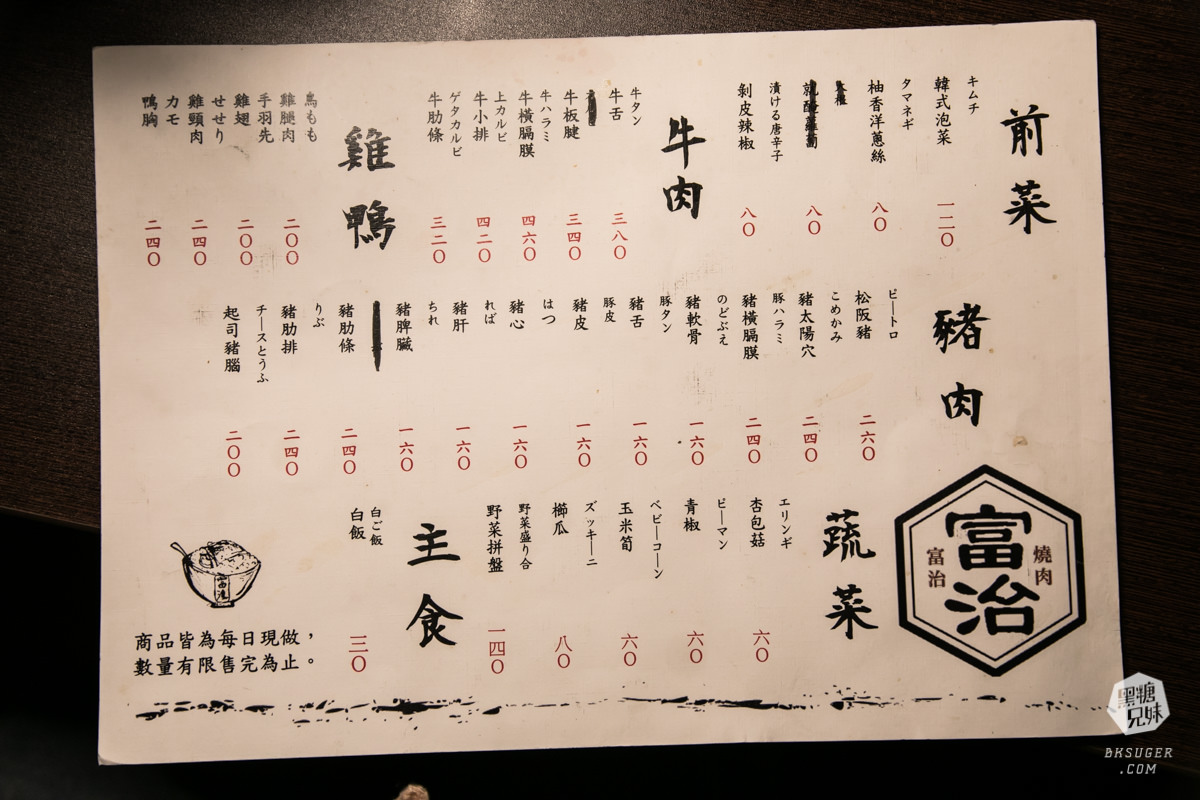 前菜
キムチ
韓式泡菜
一二〇
タマネギ
柚香洋蔥絲
八〇
八〇
漬ける唐辛子
剝皮辣椒
八〇
牛肉
牛タン
牛舌
三八〇
牛板腱
三四〇
牛ハラミ
牛橫膈膜
四六〇
上カルビ
牛小排
四二〇
ゲタカルビ
牛肋條
三二〇
雞鴨
鳥もも
雞腿肉
二〇〇
手羽先
雞翅
二〇〇
せせり
雞頸肉
二四〇
カモ
鴨胸
二四〇
豬肉
ピートロ
松阪豬
二六〇
こめかみ
豬太陽穴
二四〇
豚ハラミ
豬橫膈膜
二四〇
のどぶえ
豬軟骨
一六〇
豚タン
豬舌
一六〇
豚皮
豬皮
一六〇
はつ
豬心
一六〇
ればㅤ
豬肝
一六〇
ちれ
豬脾臟
一六〇
豬肋條
二四〇
りぶ
豬肋排
二四〇
チースとうふ
起司豬腦
二〇〇
燒肉
富治
富治
蔬菜
エリンギ
杏包菇
六〇
ピーマン
青椒
六〇
ベビーコーン
玉米筍
六〇
ズッキーニ
櫛瓜
八〇
野菜盛り合
野菜拼盤
一四〇
主食
白ご飯
白飯
三〇
商品皆為每日現做，
數量有限售完為止。
黑糖
兄妹
BKSUGER
.COM